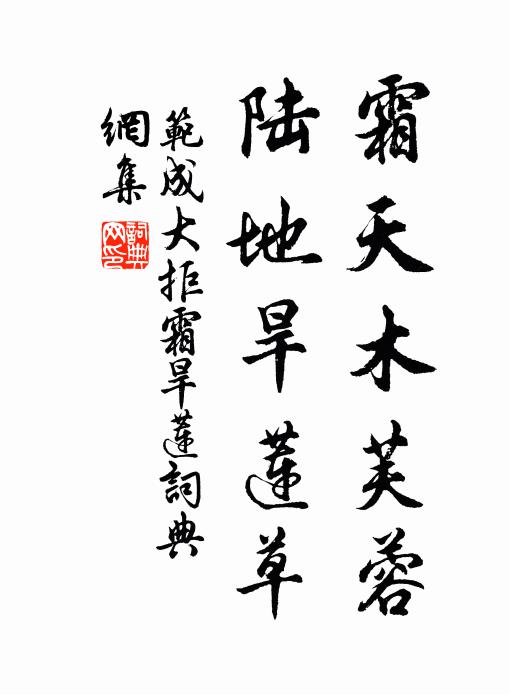 霜天木芙蓉
陆地旱蓮草
範成大拒霜旱蓮詞典
網集
詞典
网印